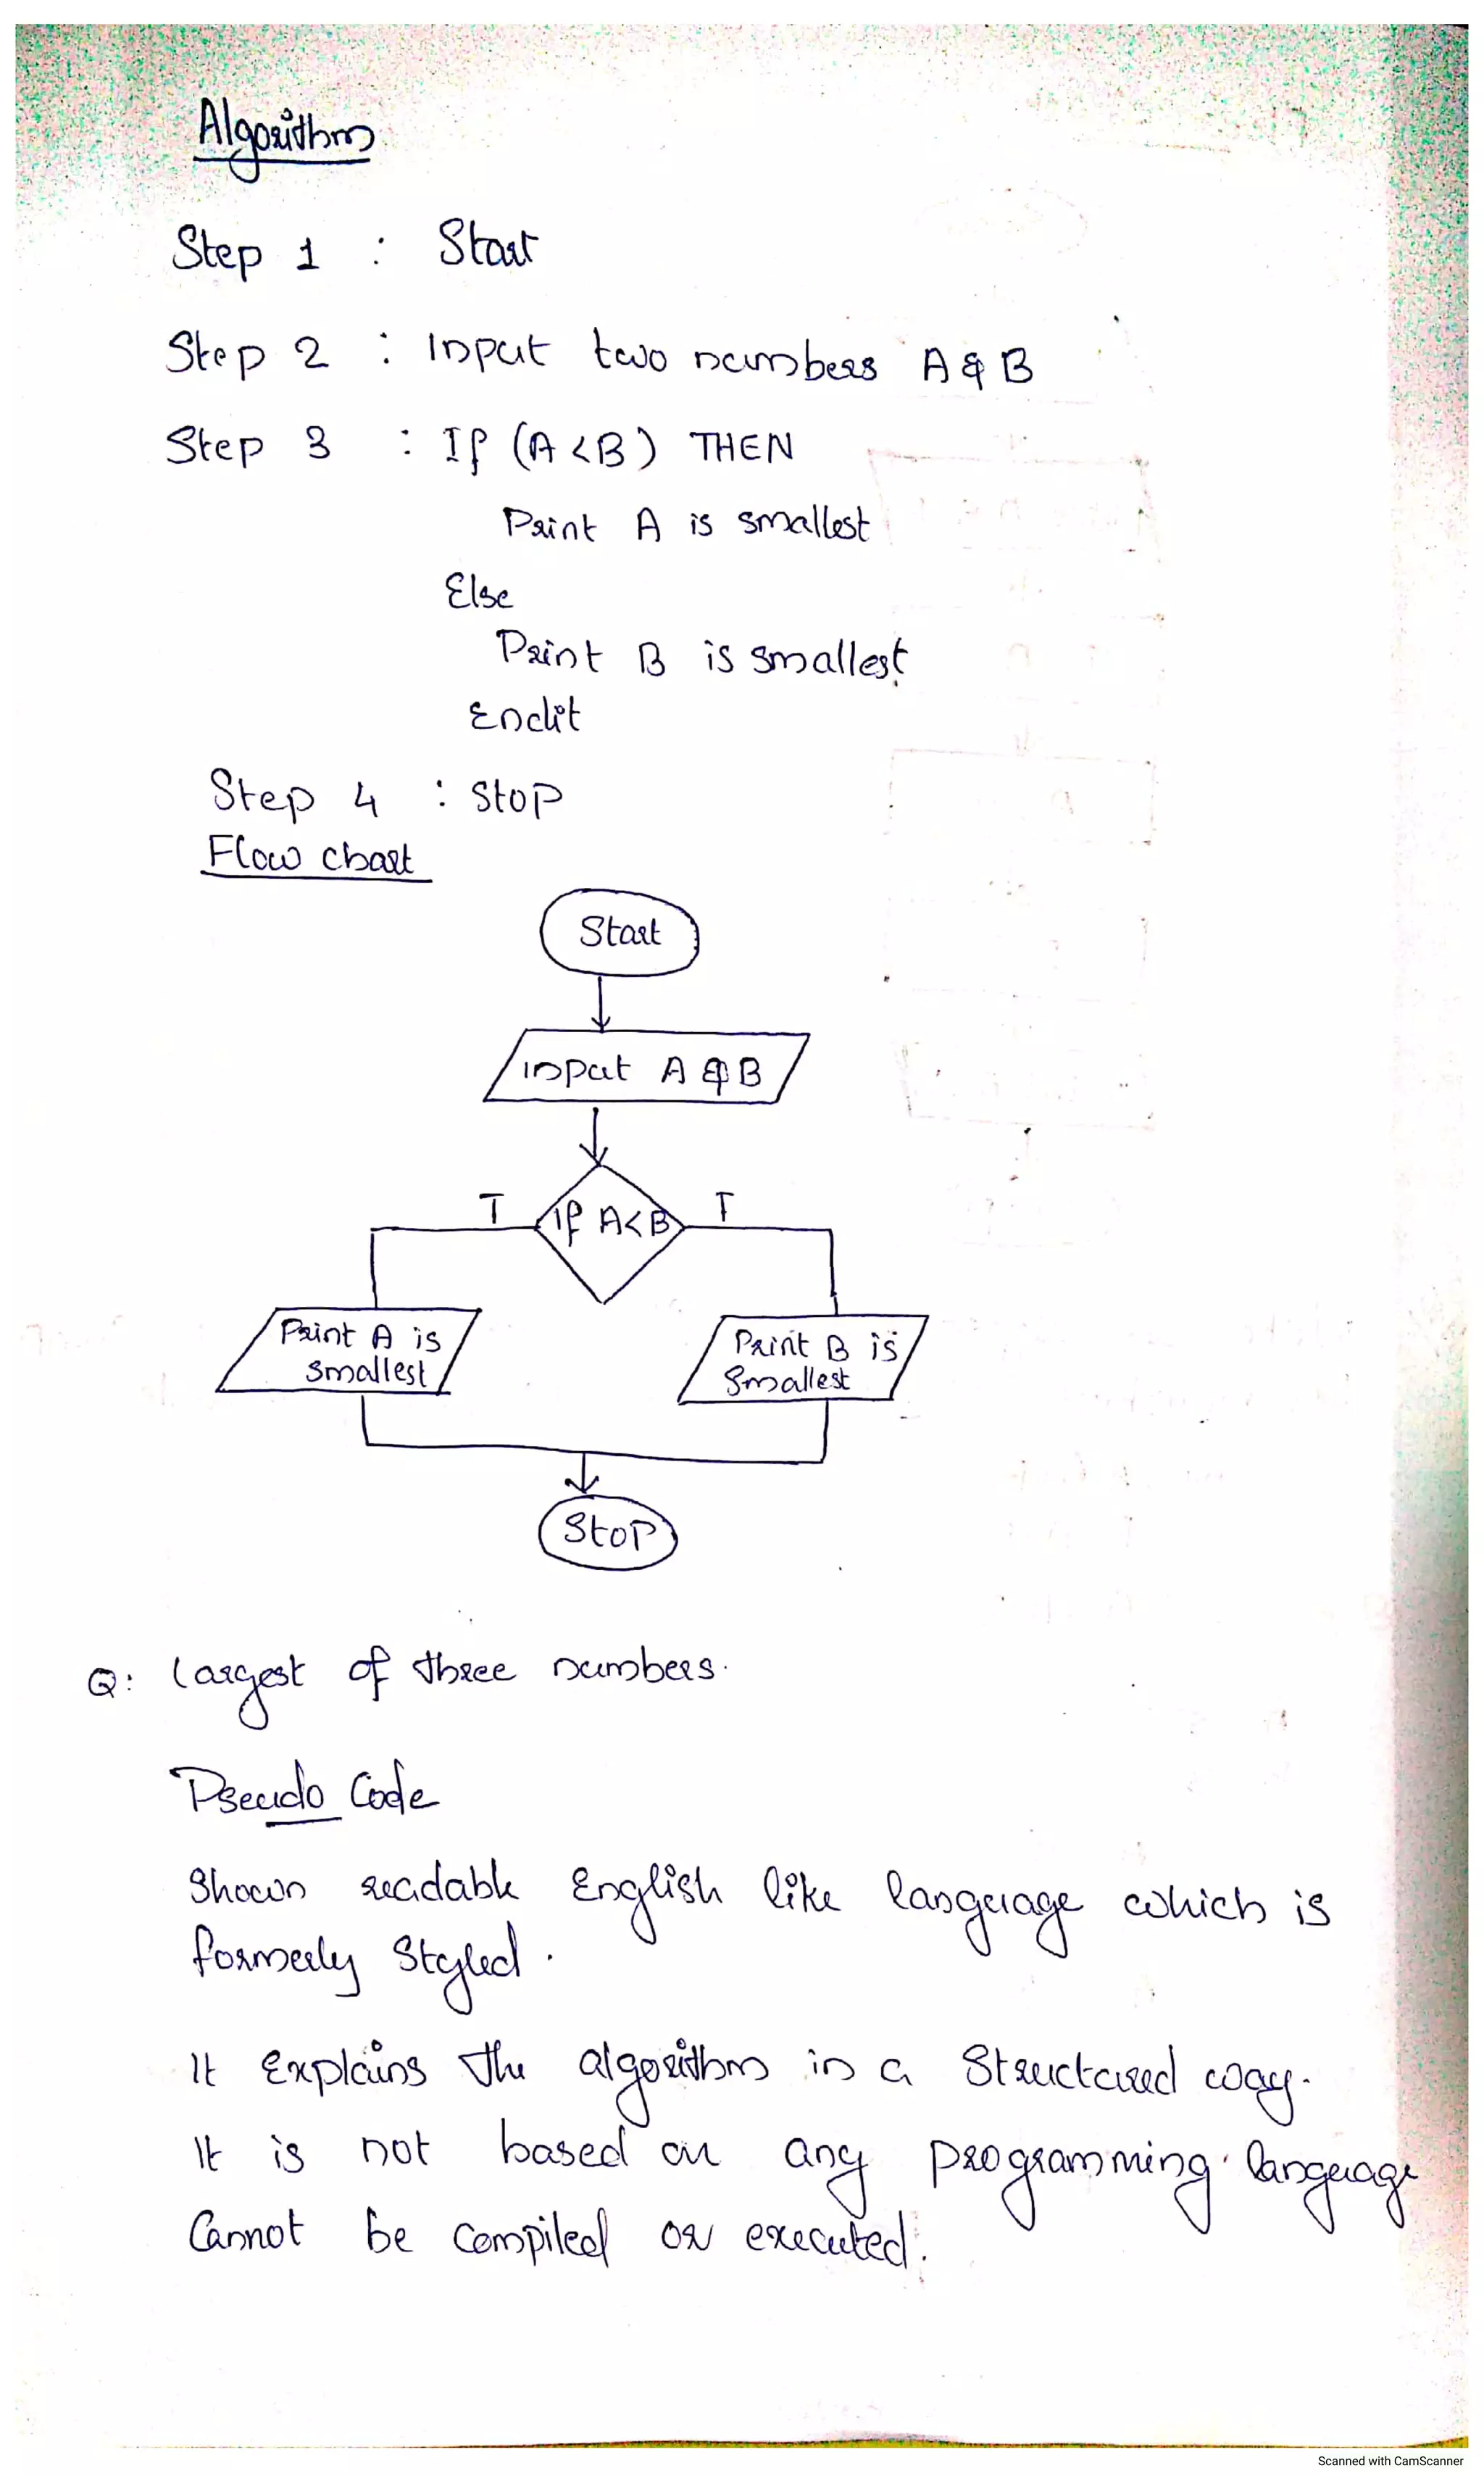 Algorithm
Step 1 : Start
Step 2 : Input two numbers A & B
Step 3 : If (A < B) THEN
Print A is smallest
Else
Print B is smallest
Endif
Step 4 : Stop
Flow chart
Start
input A & B
T if A<B T
Print A is
smallest
Print B is
smallest
Stop
Q: largest of three numbers.
Pseudo Code
Shown readable English like language which is
formerly styled.
It explains the algorithm in a structured way.
It is not based on any programming language
Cannot be compiled or executed.
Scanned with CamScanner